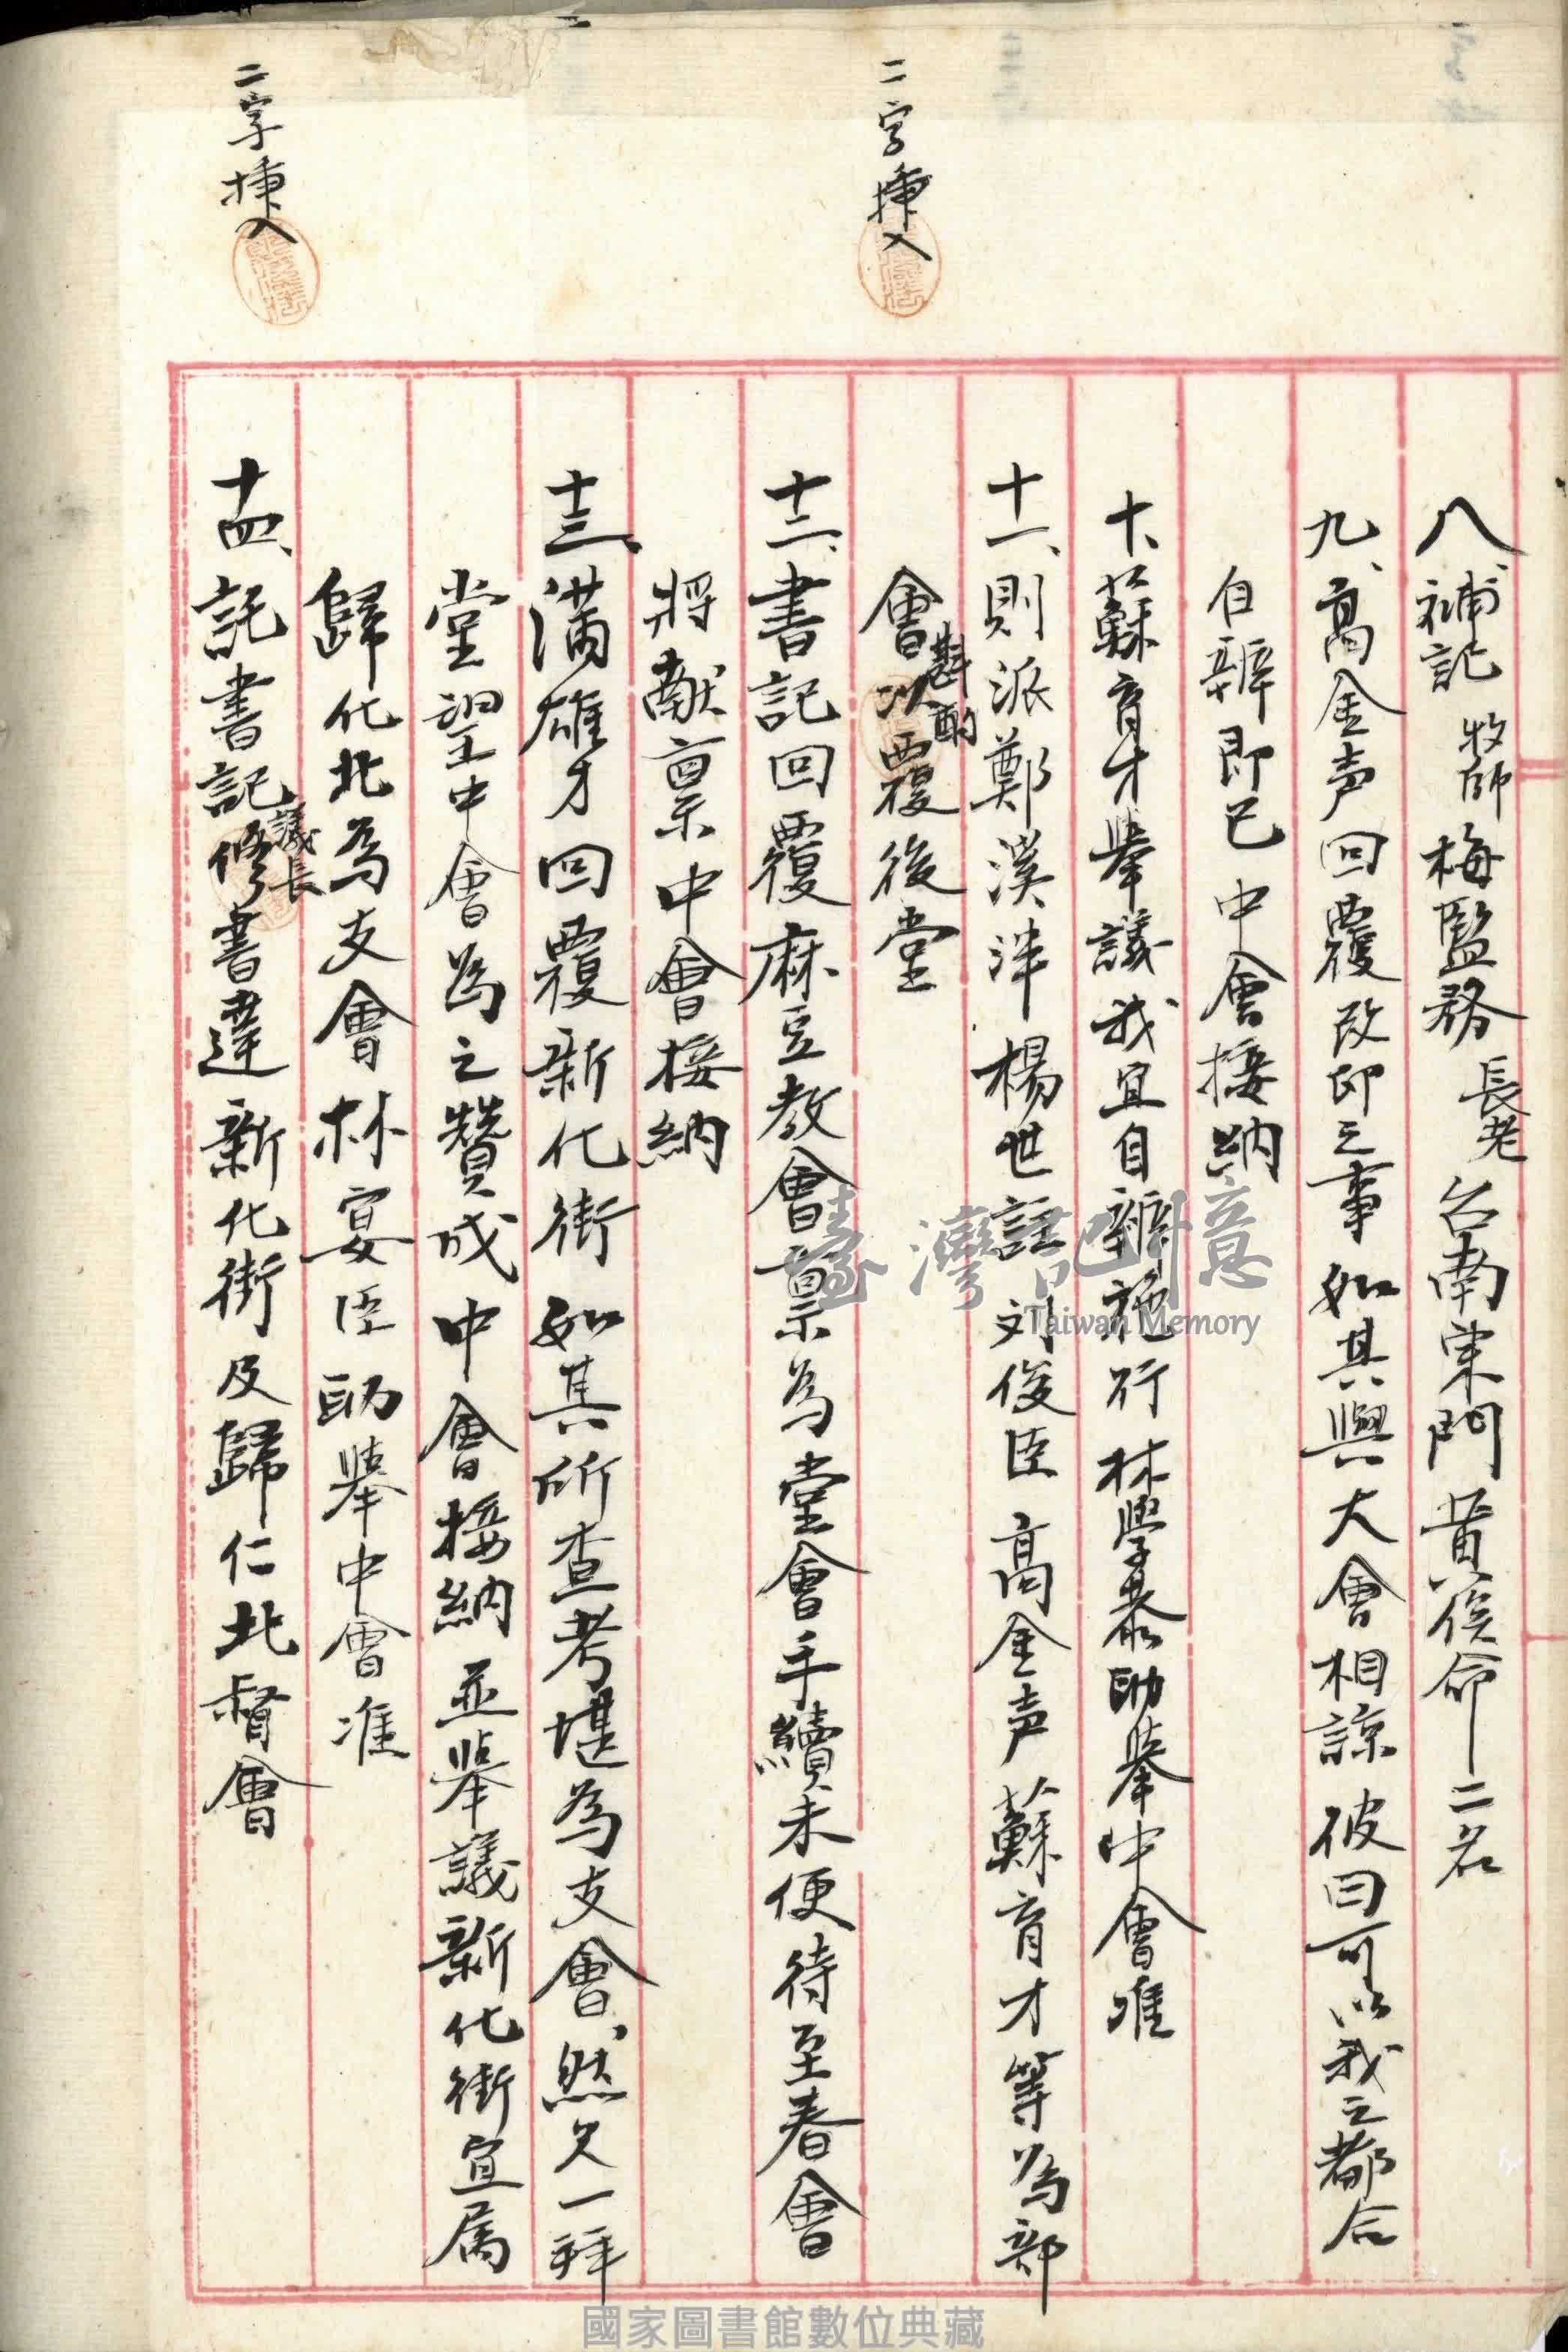 二字挿入
二字挿入
八、補記 牧師 梅監務 長老 台南東門 黄俟命 二名
九、高金声回覆改印之事 如其與大會相諒 彼曰可以我之都合
自辦即已 中會接納
十、蘇育才舉議我宜自辦施行 林學恭助舉中會准
十一、則派鄭溪泮 楊世註 刘俊臣 高金声 蘇育才等為部
會斟酌以覆後堂
十二、書記回覆麻豆教會禀為堂會手續未便待至春會
將献禀中會接納
十三、潘雄才回覆新化街 如其所查考堪為支會、然欠一拜
堂望中會為之贊成 中會接納 並舉議新化街宜属
歸化北為支會 林宴臣 助舉中會准
十四、託書記議長修書達新化街及歸仁北督會
臺灣記憶
Taiwan Memory
國家圖書館數位典藏